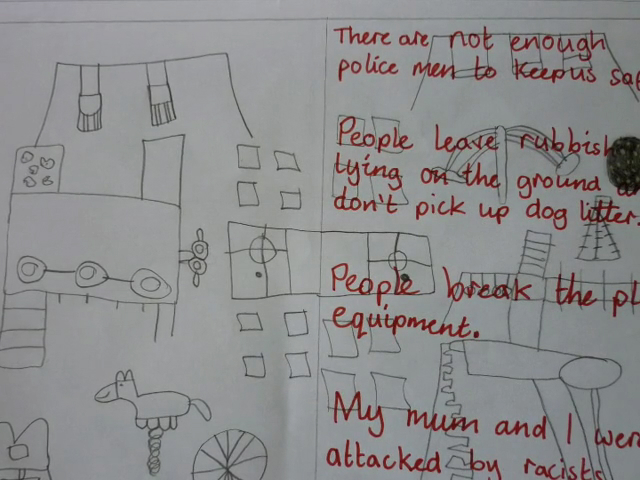 There are not enough
police men to keep us
People leave
lying on the ground
don't pick up dog litter.
People break the
equipment.
My mum and I
attacked by racists